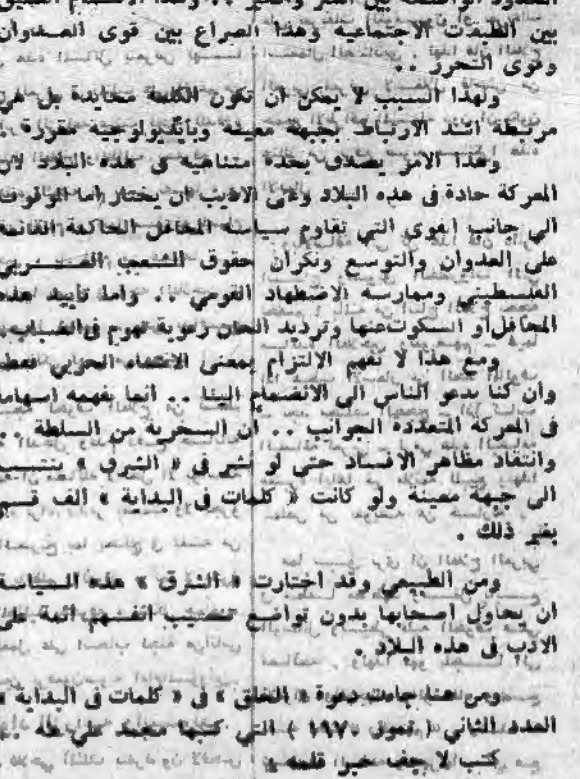 بين الطبقات الاجتماعية وهذا الصراع بين قوى العدوان
وقوى التحرر ..
ولهذا السبب لا يمكن ان تكون الكلمة محايدة بل هي
مرتبطة اشد الارتباط بجبهة معينة وبايديولوجية مقررة .
وهذا الامر يصدق بحدة متناهية في هذه البلاد لان
المعركة حادة في هذه البلاد وعلى الاديب ان يختار اما الوقوف
الى جانب القوى التي تقاوم سياسة المحافل الحاكمة القائمة
على العدوان والتوسع ونكران حقوق الشعب العـــربي
الفلسطيني وممارسة الاضطهاد القومي .. واما تأييد هذه
المحافل أو السكوت عنها وترديد الحان رعوية تهوم في الضباب .
ومع هذا لا نفهم الالتزام بمعنى الانتماء الحزبي فقط
وان كنا ندعو الناس الى الانضمام الينا .. انما نفهمه اسهاما
في المعركة المتعددة الجوانب .. ان السخرية من السلطة
وانتقاد مظاهر الافساد حتى لو نشر في « الشرق » ينتسب
الى جبهة معينة ولو كانت « كلمات في البداية » الف قسم
بغير ذلك .
ومن الطبيعي وقد اختارت « الشرق » هذه السياسة
ان يحاول اصحابها بدون تواضع تنصيب انفسهم ائمة على
الادب في هذه البلاد .
ومن هنا جاءت دعوة « الخلق » في « كلمات في البداية »
العدد الثاني ( تموز ١٩٧٠ ) التي كتبها محمد علي طه
كتب لا يجف حبر قلمه